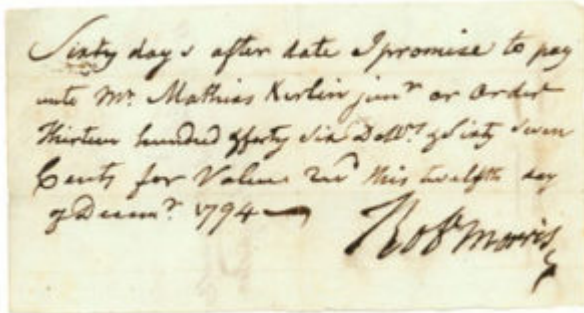 Sixty days after date I promise to pay
unto Mr. Mathias Kerlin junr or Order
Thirteen hundred & forty Six Dollrs & Sixty Seven
Cents for Value recd this twelfth day
of Decemr. 1794
Robt Morris